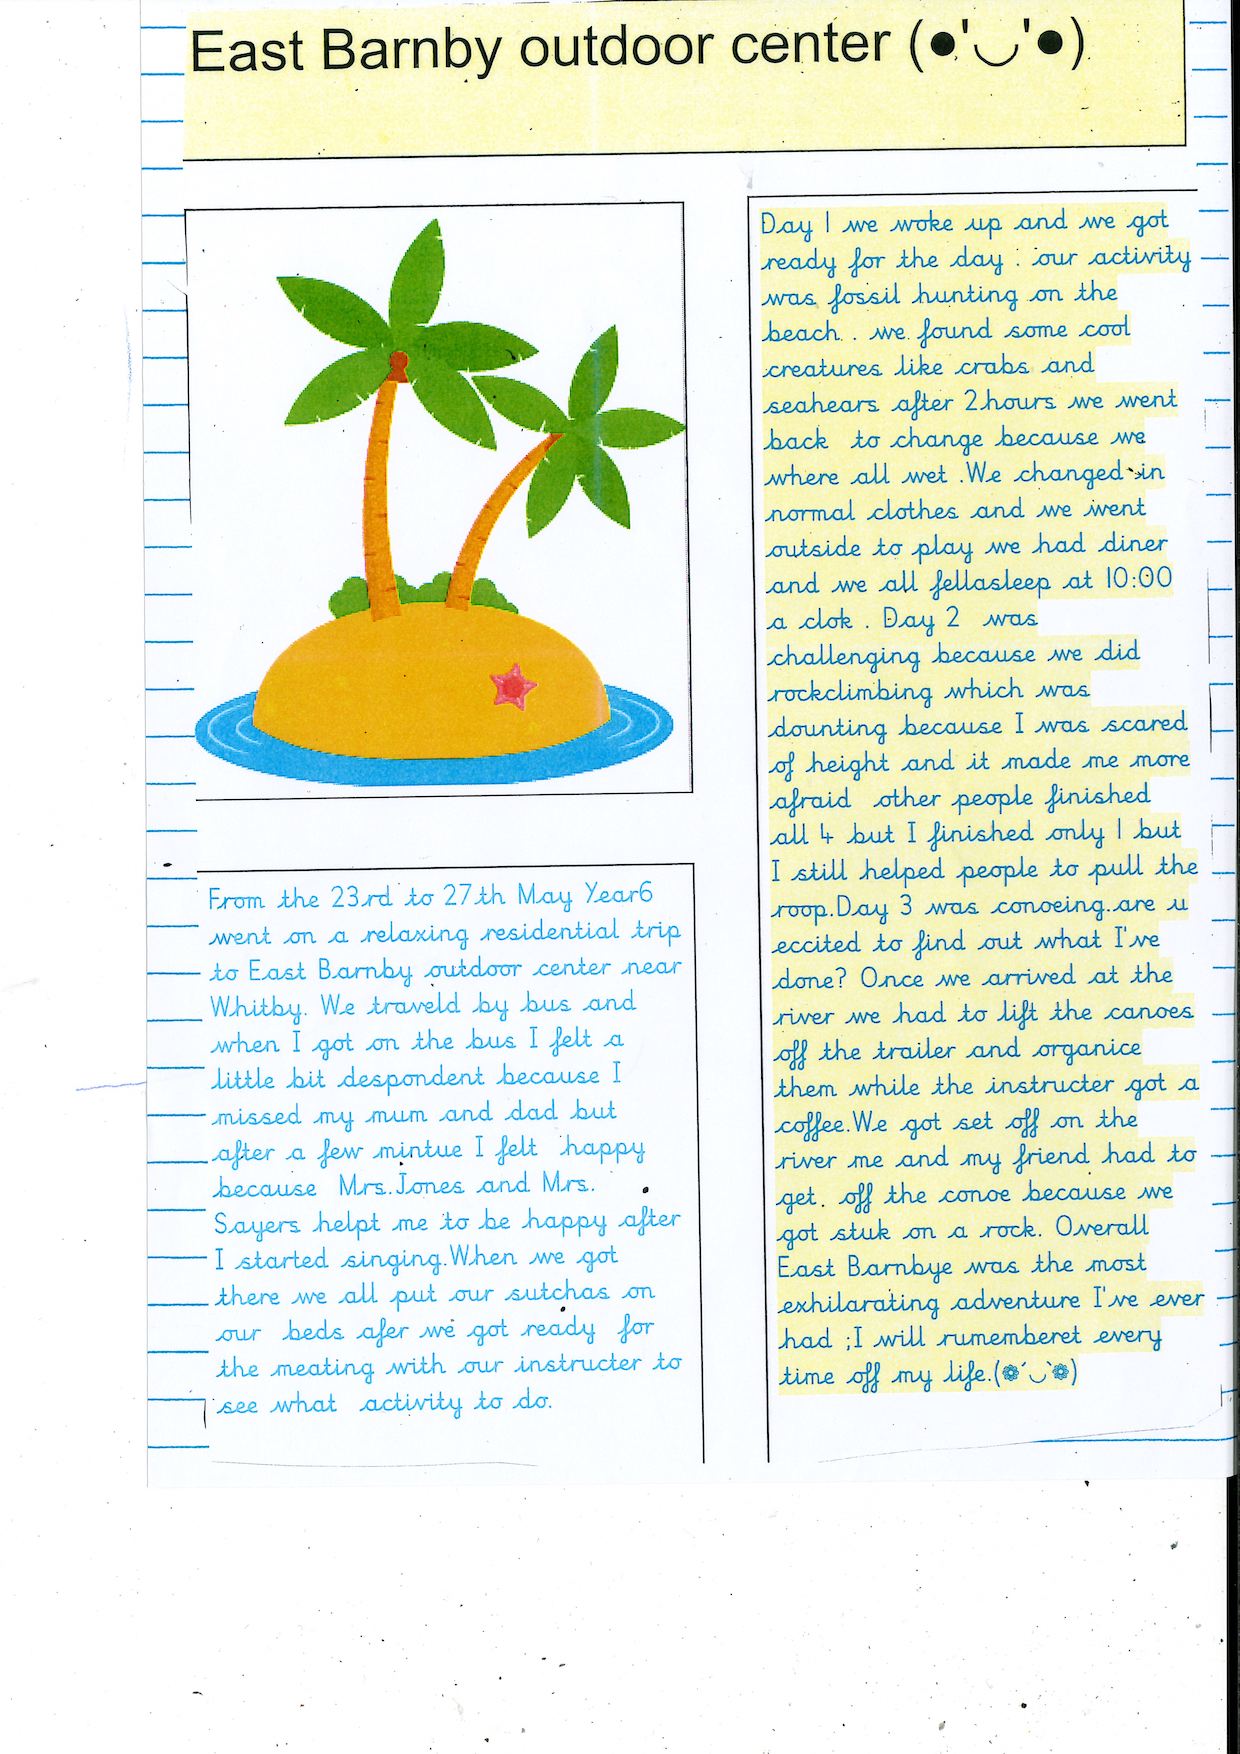 East Barnby outdoor center (●'◡'●)
From the 23rd to 27th May Year6
went on a relaxing residential trip
to East Barnby outdoor center near
Whitby. We traveld by bus and
when I got on the bus I felt a
little bit despondent because I
missed my mum and dad but
after a few mintue I felt happy
because Mrs.Jones and Mrs.
Sayers helpt me to be happy after
I started singing.When we got
there we all put our sutchas on
our beds afer we got ready for
the meating with our instructer to
see what activity to do.
Day 1 we woke up and we got
ready for the day . our activity
was fossil hunting on the
beach. . we found some cool
creatures like crabs and
seahears after 2hours we went
back to change because we
where all wet .We changed in
normal clothes and we went
outside to play we had diner
and we all fellasleep at 10:00
a clok . Day 2 was
challenging because we did
rockclimbing which was
dounting because I was scared
of height and it made me more
afraid other people finished
all 4 but I finished only 1 but
I still helped people to pull the
roop.Day 3 was conoeing.are u
eccited to find out what I've
done? Once we arrived at the
river we had to lift the canoes
off the trailer and organice
them while the instructer got a
coffee.We got set off on the
river me and my friend had to
get. off the conoe because we
got stuk on a rock. Overall
East Barnbye was the most
exhilarating adventure I've ever
had ;I will rumemberet every
time off my life.(❁´◡`❁)